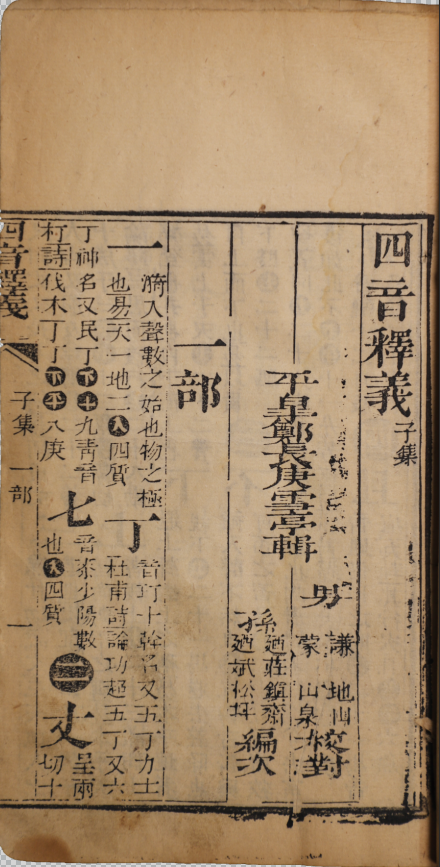 四音釋義 子集
平皐鄭長庚雪亭輯
男 謙 地山 蒙 山泉 校對
孫 廼莊鎮齋 廼斌松坪 編次
一部
一 漪入聲數之始也物之極
也易天一地二入四質
丁 音玎十幹名又五丁力士
杜甫詩論功超五丁又六
丁神名又民丁下十九青音
朾詩伐木丁丁下平八庚
七 音桼少陽數
也入四質
三
丈 呈兩
切十
四音釋義
子集 一部
一